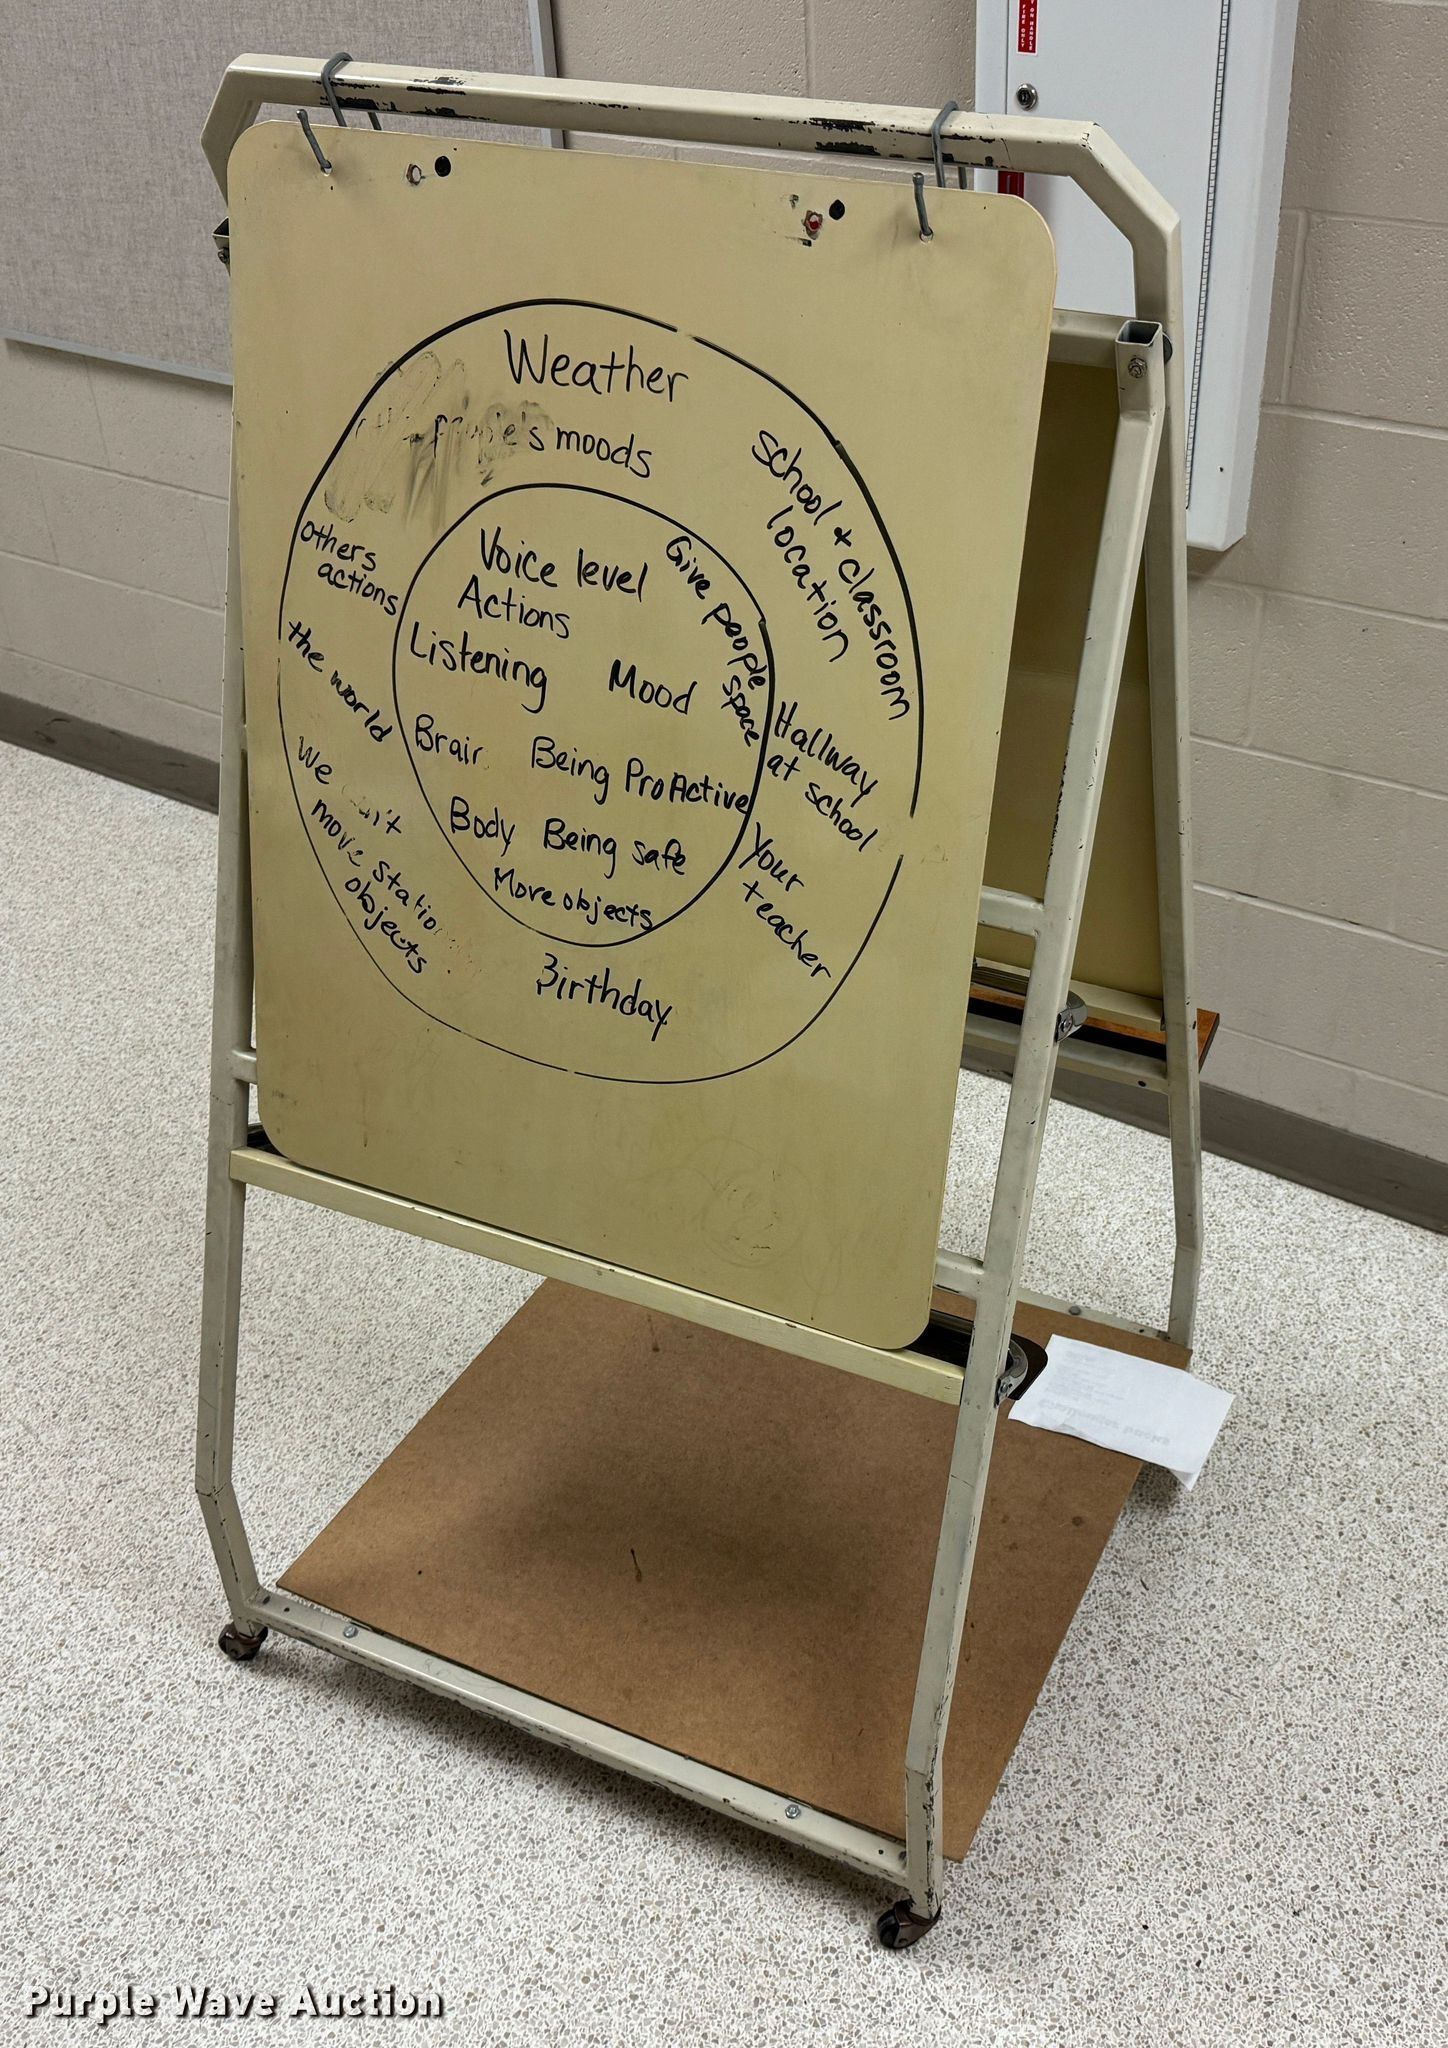 ON HANDLE
FIRE ONLY
Weather
moods
School + classroom
location
Others
actions
the world
We
move
objects
Hallway
at school
Your
teacher
Birthday
Voice level
Actions
Listening
Mood
Give people
space
Being ProActive
Body
Being safe
More objects
Purple Wave Auction